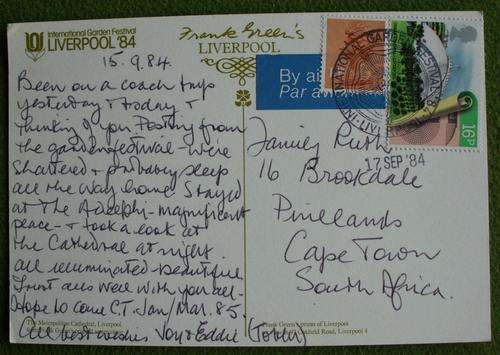 International Garden Festival
LIVERPOOL '84
Frank Green's
LIVERPOOL
15.9.84.
Been on a coach trip
yesterday & today &
thinking of you. Posting from
the garden festival - we're
shattered & probably sleep
all the way home. Stayed
at The Adelphi - magnificent
place - & took a look at
the Cathedral at night
all illuminated - beautiful
Trust all's well with you all -
Hope to come C.T. Jan/Mar. 85.
All best wishes Joy & Eddie (Tobler)
The Metropolitan Cathedral, Liverpool
Frank Green's prints of Liverpool
Road, Liverpool 4
By air
Par av
INTERNATIONAL GARDEN FESTIVAL
17 SEP '84
16P
Ruth
16 Brookdale
Pinelands
Cape Town
South Africa.